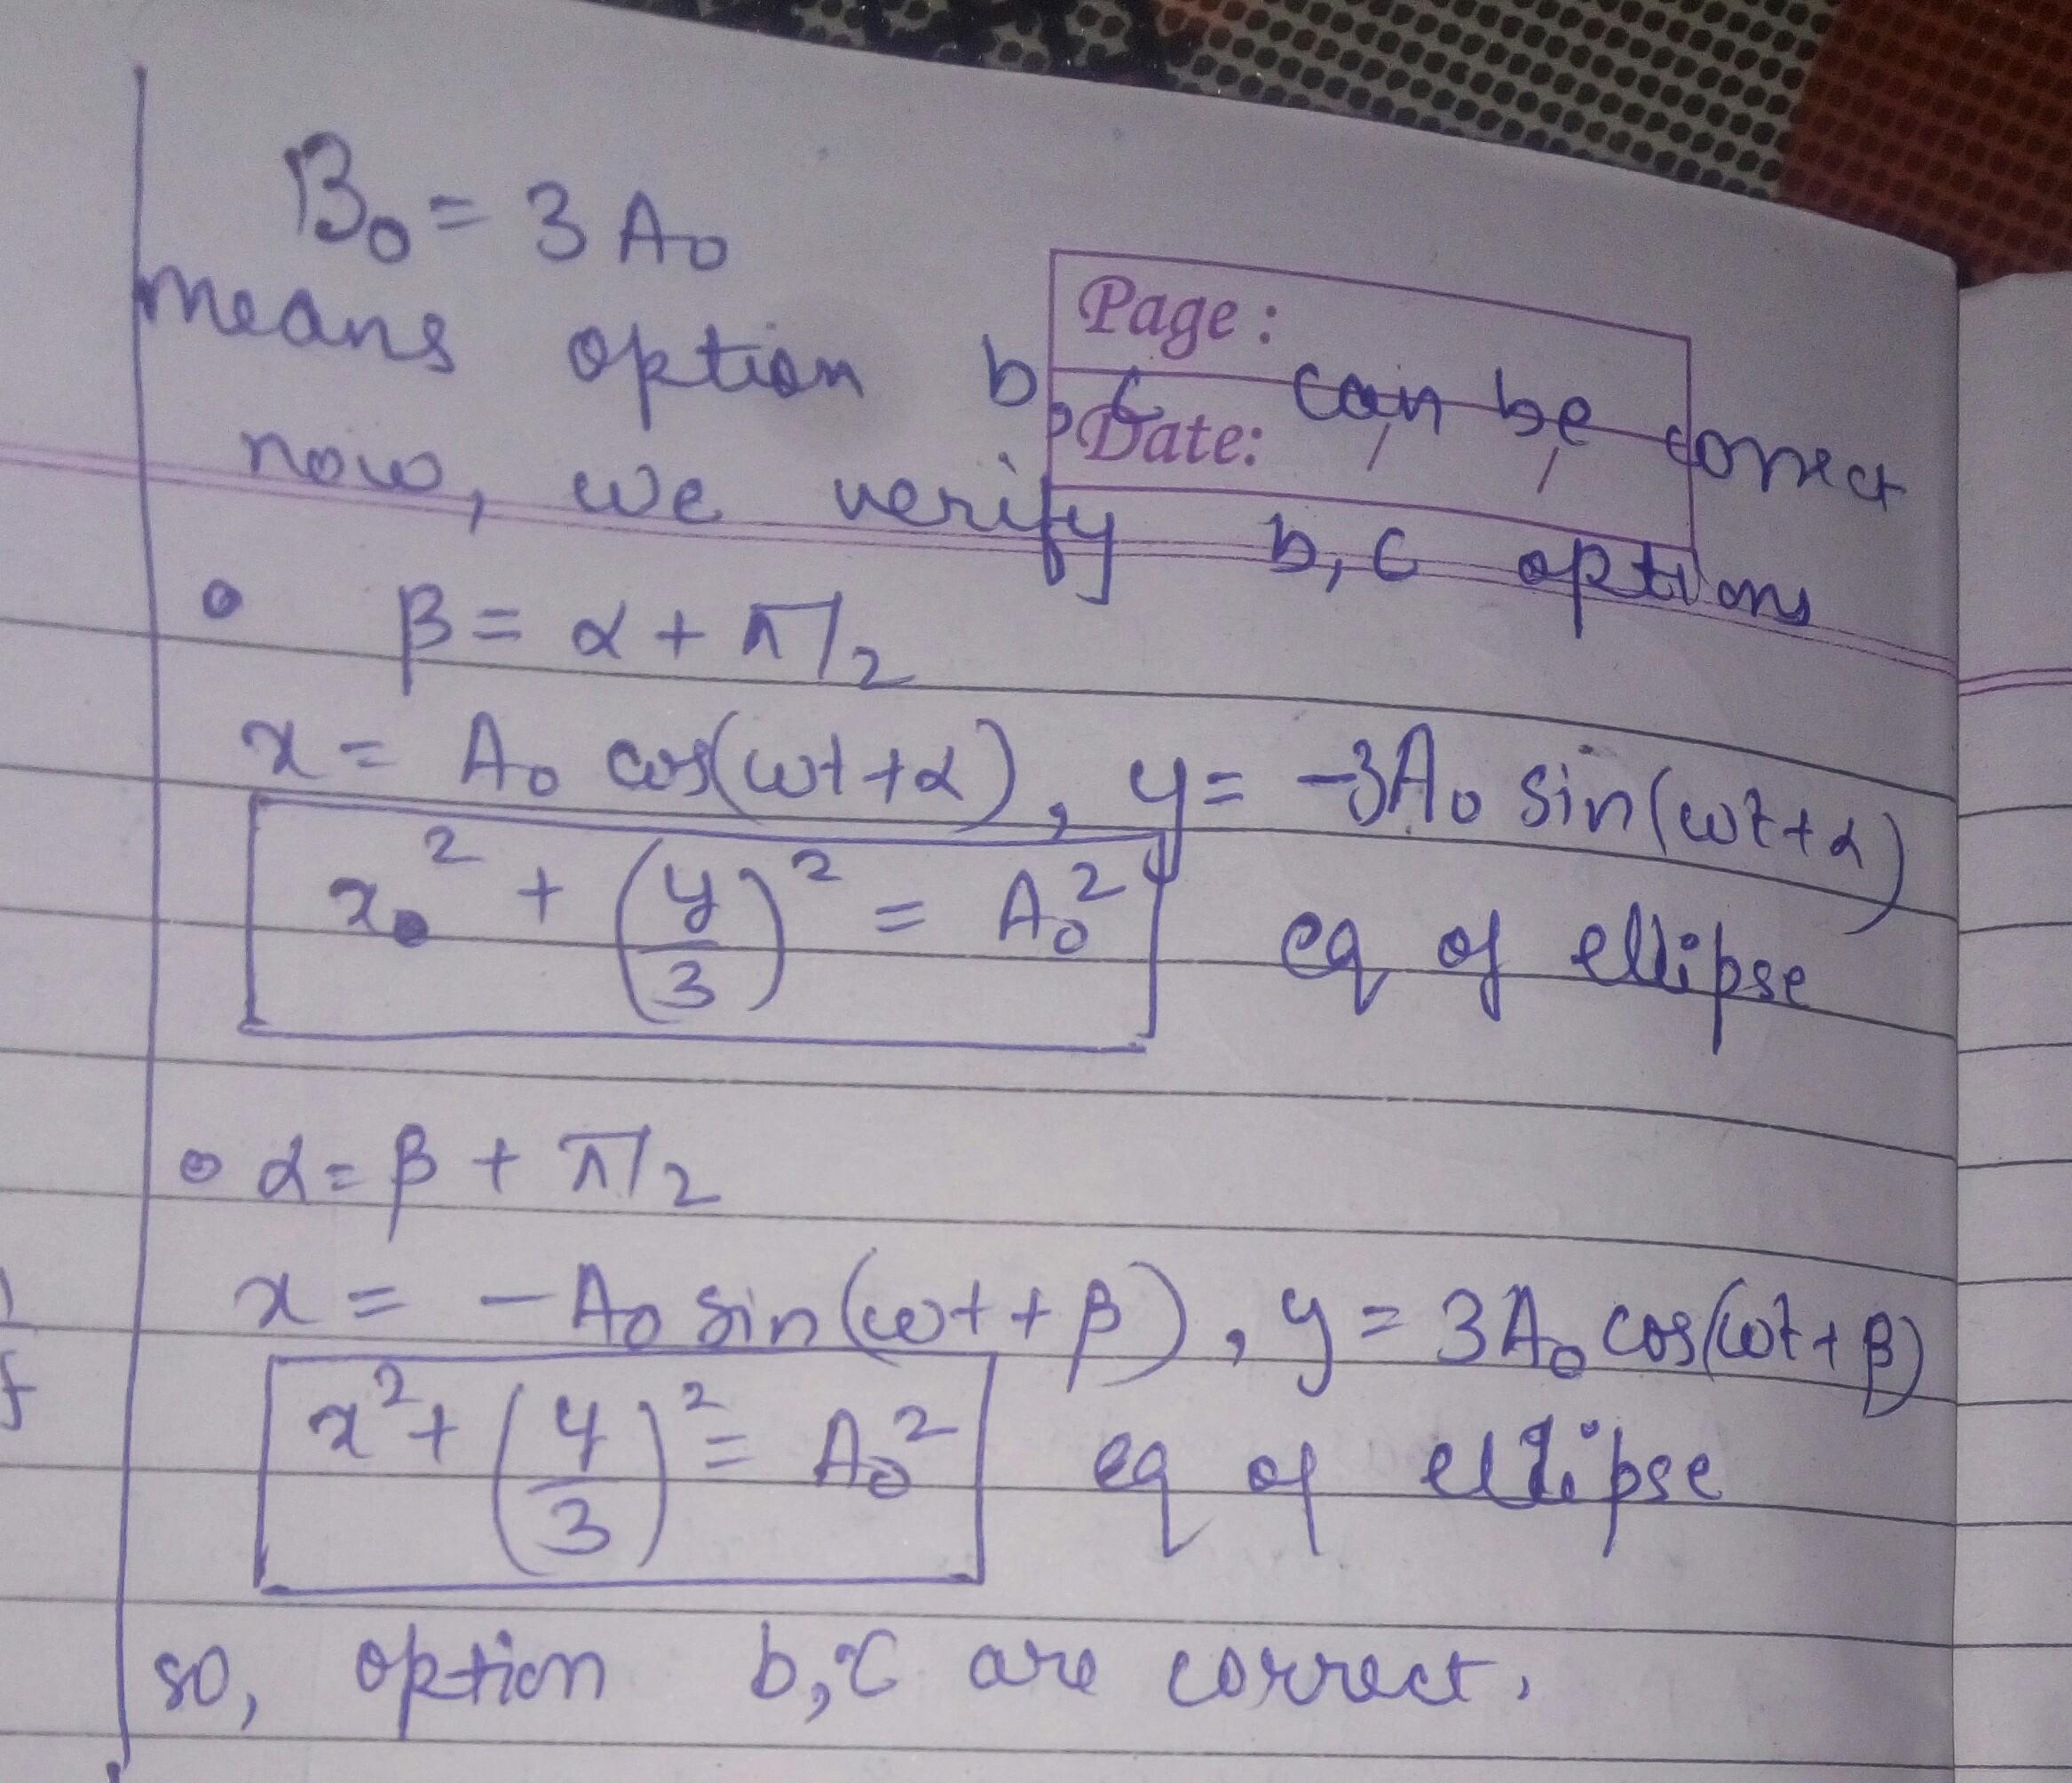 B₀ = 3 A₀
Page :
means option b, c can be correct
Date: / /
now, we verify b, c options
β = α + π/2
x = A₀ cos(ωt + α), y = -3A₀ sin(ωt + α)
x² + (y/3)² = A₀² eq of ellipse
α = β + π/2
x = - A₀ sin(ωt + β), y = 3A₀ cos(ωt + β)
x² + (y/3)² = A₀² eq of ellipse
so, option b, c are correct.